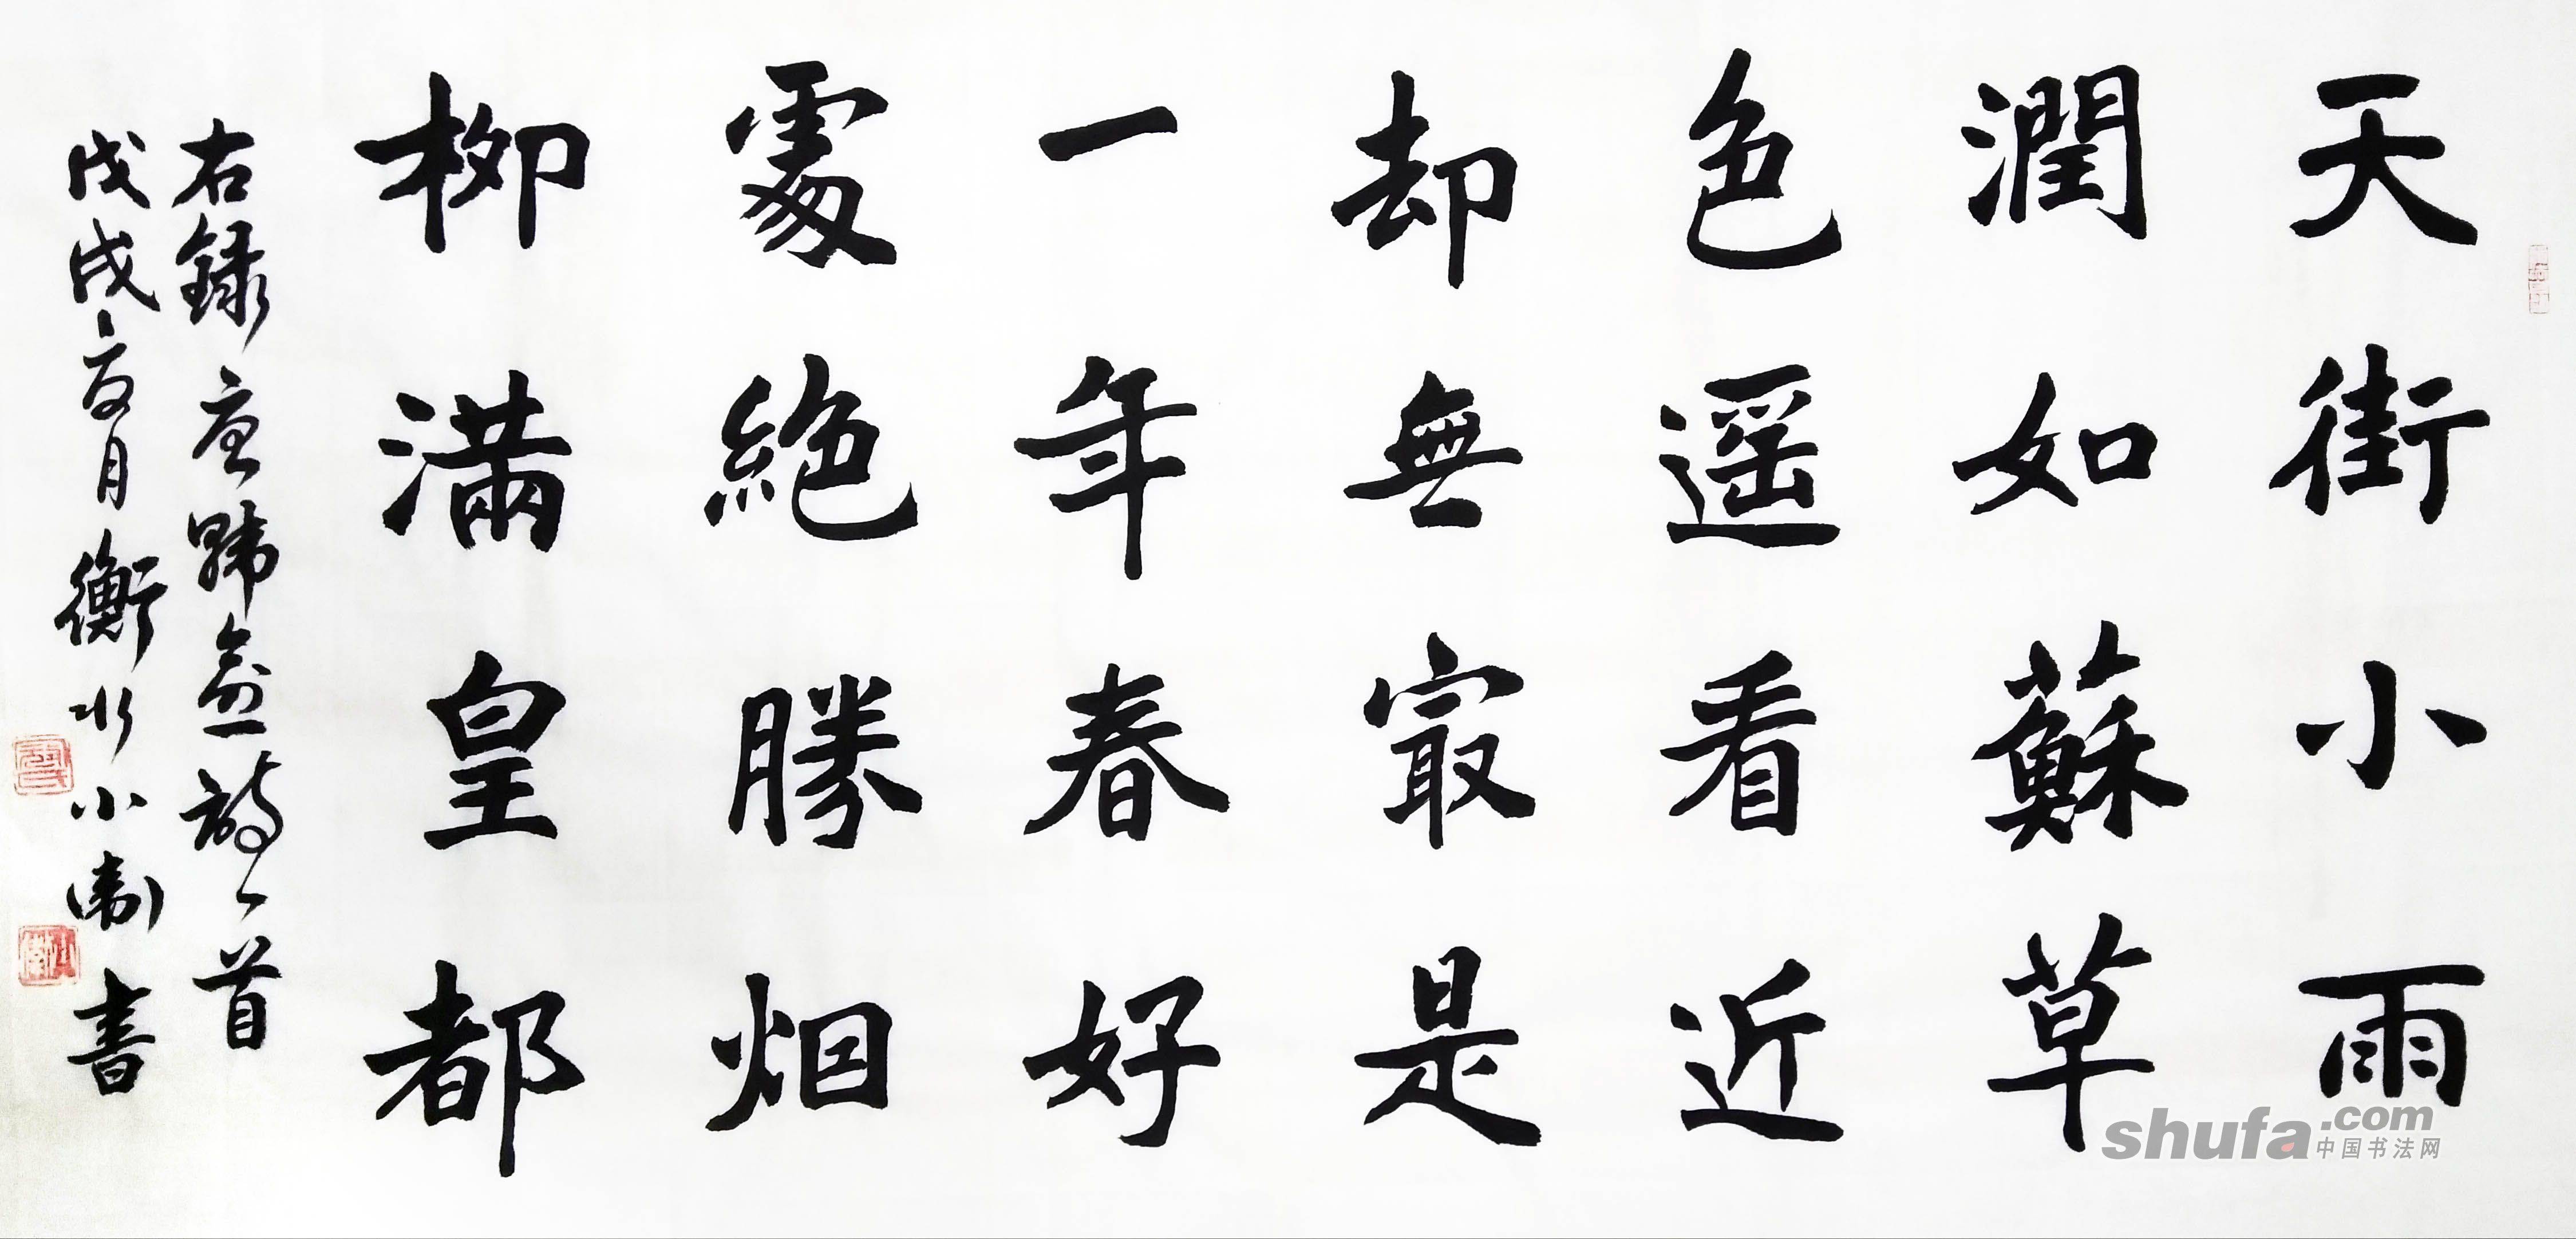 天街小雨
潤如蘇草
色遥看近
却無寂是
一年春好
處絕勝烟
柳滿皇都
右錄唐韩愈詩一首
戊戌夏月衡水小衛書
shufa.com
中国书法网